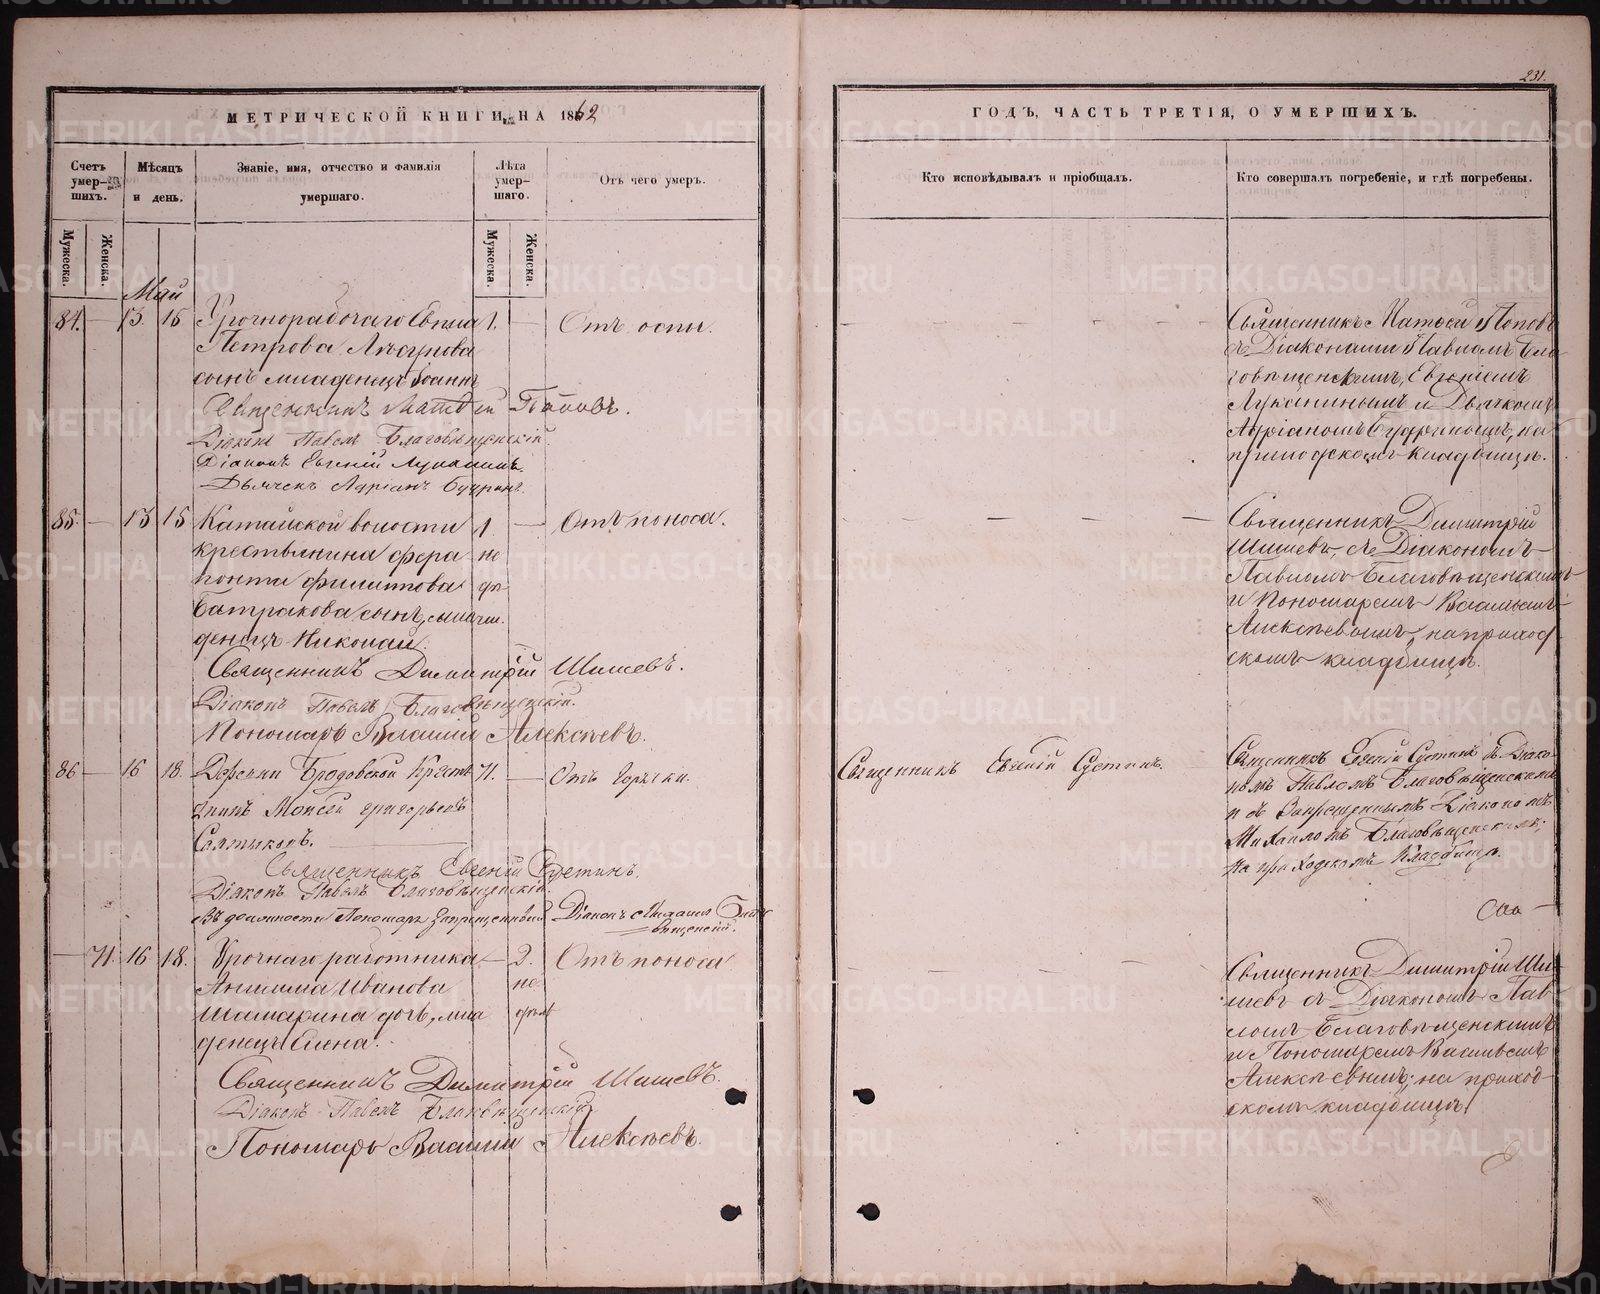 231.
МЕТРИЧЕСКОЙ КНИГИ, НА 1862
ГОДЪ, ЧАСТЬ ТРЕТІЯ, О УМЕРШИХЪ.
Счетъ умер-шихъ.
Мѣсяцъ и день.
Званіе, имя, отчество и фамилія умершаго.
Лѣта умер-шаго.
Отъ чего умеръ.
Кто исповѣдывалъ и пріобщалъ.
Кто совершалъ погребеніе, и гдѣ погребены.
Мужеска.
Женска.
Мужеска.
Женска.
Май
84. — 13. 15 Урочнорабочаго 1. — Отъ оспы.
Петрова
сынъ младенецъ Іоаннъ
Священникъ Матвѣй Поповъ.
Діаконъ Павелъ Благовѣщенскій.
Діаконъ Евгеній Луканинъ.
Дьячекъ Адріанъ Будринъ.
Священникъ Матвѣй Поповъ
съ Діаконами Павломъ Бла
говѣщенскимъ, Евгеніемъ
Луканинымъ и Дьячкомъ
Адріаномъ Будринымъ, на
приходскомъ кладбищѣ.
85. — 13 15 Катайской волости 1. — Отъ поноса.
крестьянина Фера не
понта Филиппова дѣ
Батракова сынъ, мла
денецъ Николай.
Священникъ Димитрій Шишевъ.
Діаконъ Павелъ Благовѣщенскій.
Пономарь Василій Алексѣевъ.
Священникъ Димитрій
Шишевъ, съ Діакономъ
Павломъ Благовѣщенскимъ
и Пономаремъ Васильемъ
Алексѣевымъ, на приход-
скомъ кладбищѣ.
86 — 16 18. Деревни Бродовской Кресть 71. — Отъ горячки.
янинъ Моисей Григорьевъ
Салтыковъ.
Священникъ Евгеній Сѣтинъ.
Діаконъ Павелъ Благовѣщенскій.
Въ должности Пономаря запрещенный Діаконъ Михаилъ Благо
вѣщенскій.
Священникъ Евгеній Сѣтинъ.
Священникъ Евгеній Сѣтинъ съ Діако-
номъ Павломъ Благовѣщенскимъ
и съ Запрещеннымъ Діакономъ
Михаиломъ Благовѣщенскимъ;
на приходскомъ Кладбищѣ.
— 71. 16 18. Урочнаго работника — 2. Отъ поноса
Анисима Иванова не
Шамарина дочь, мла
денецъ Елена.
Священникъ Димитрій Шишевъ.
Діаконъ Павелъ Благовѣщенскій
Пономарь Василій Алексѣевъ.
Священникъ Димитрій Ши-
шевъ съ Діакономъ Пав-
ломъ Благовѣщенскимъ
и Пономаремъ Васильемъ
Алексѣевымъ; на приход-
скомъ кладбищѣ
METRIKI.GASO-URAL.RU